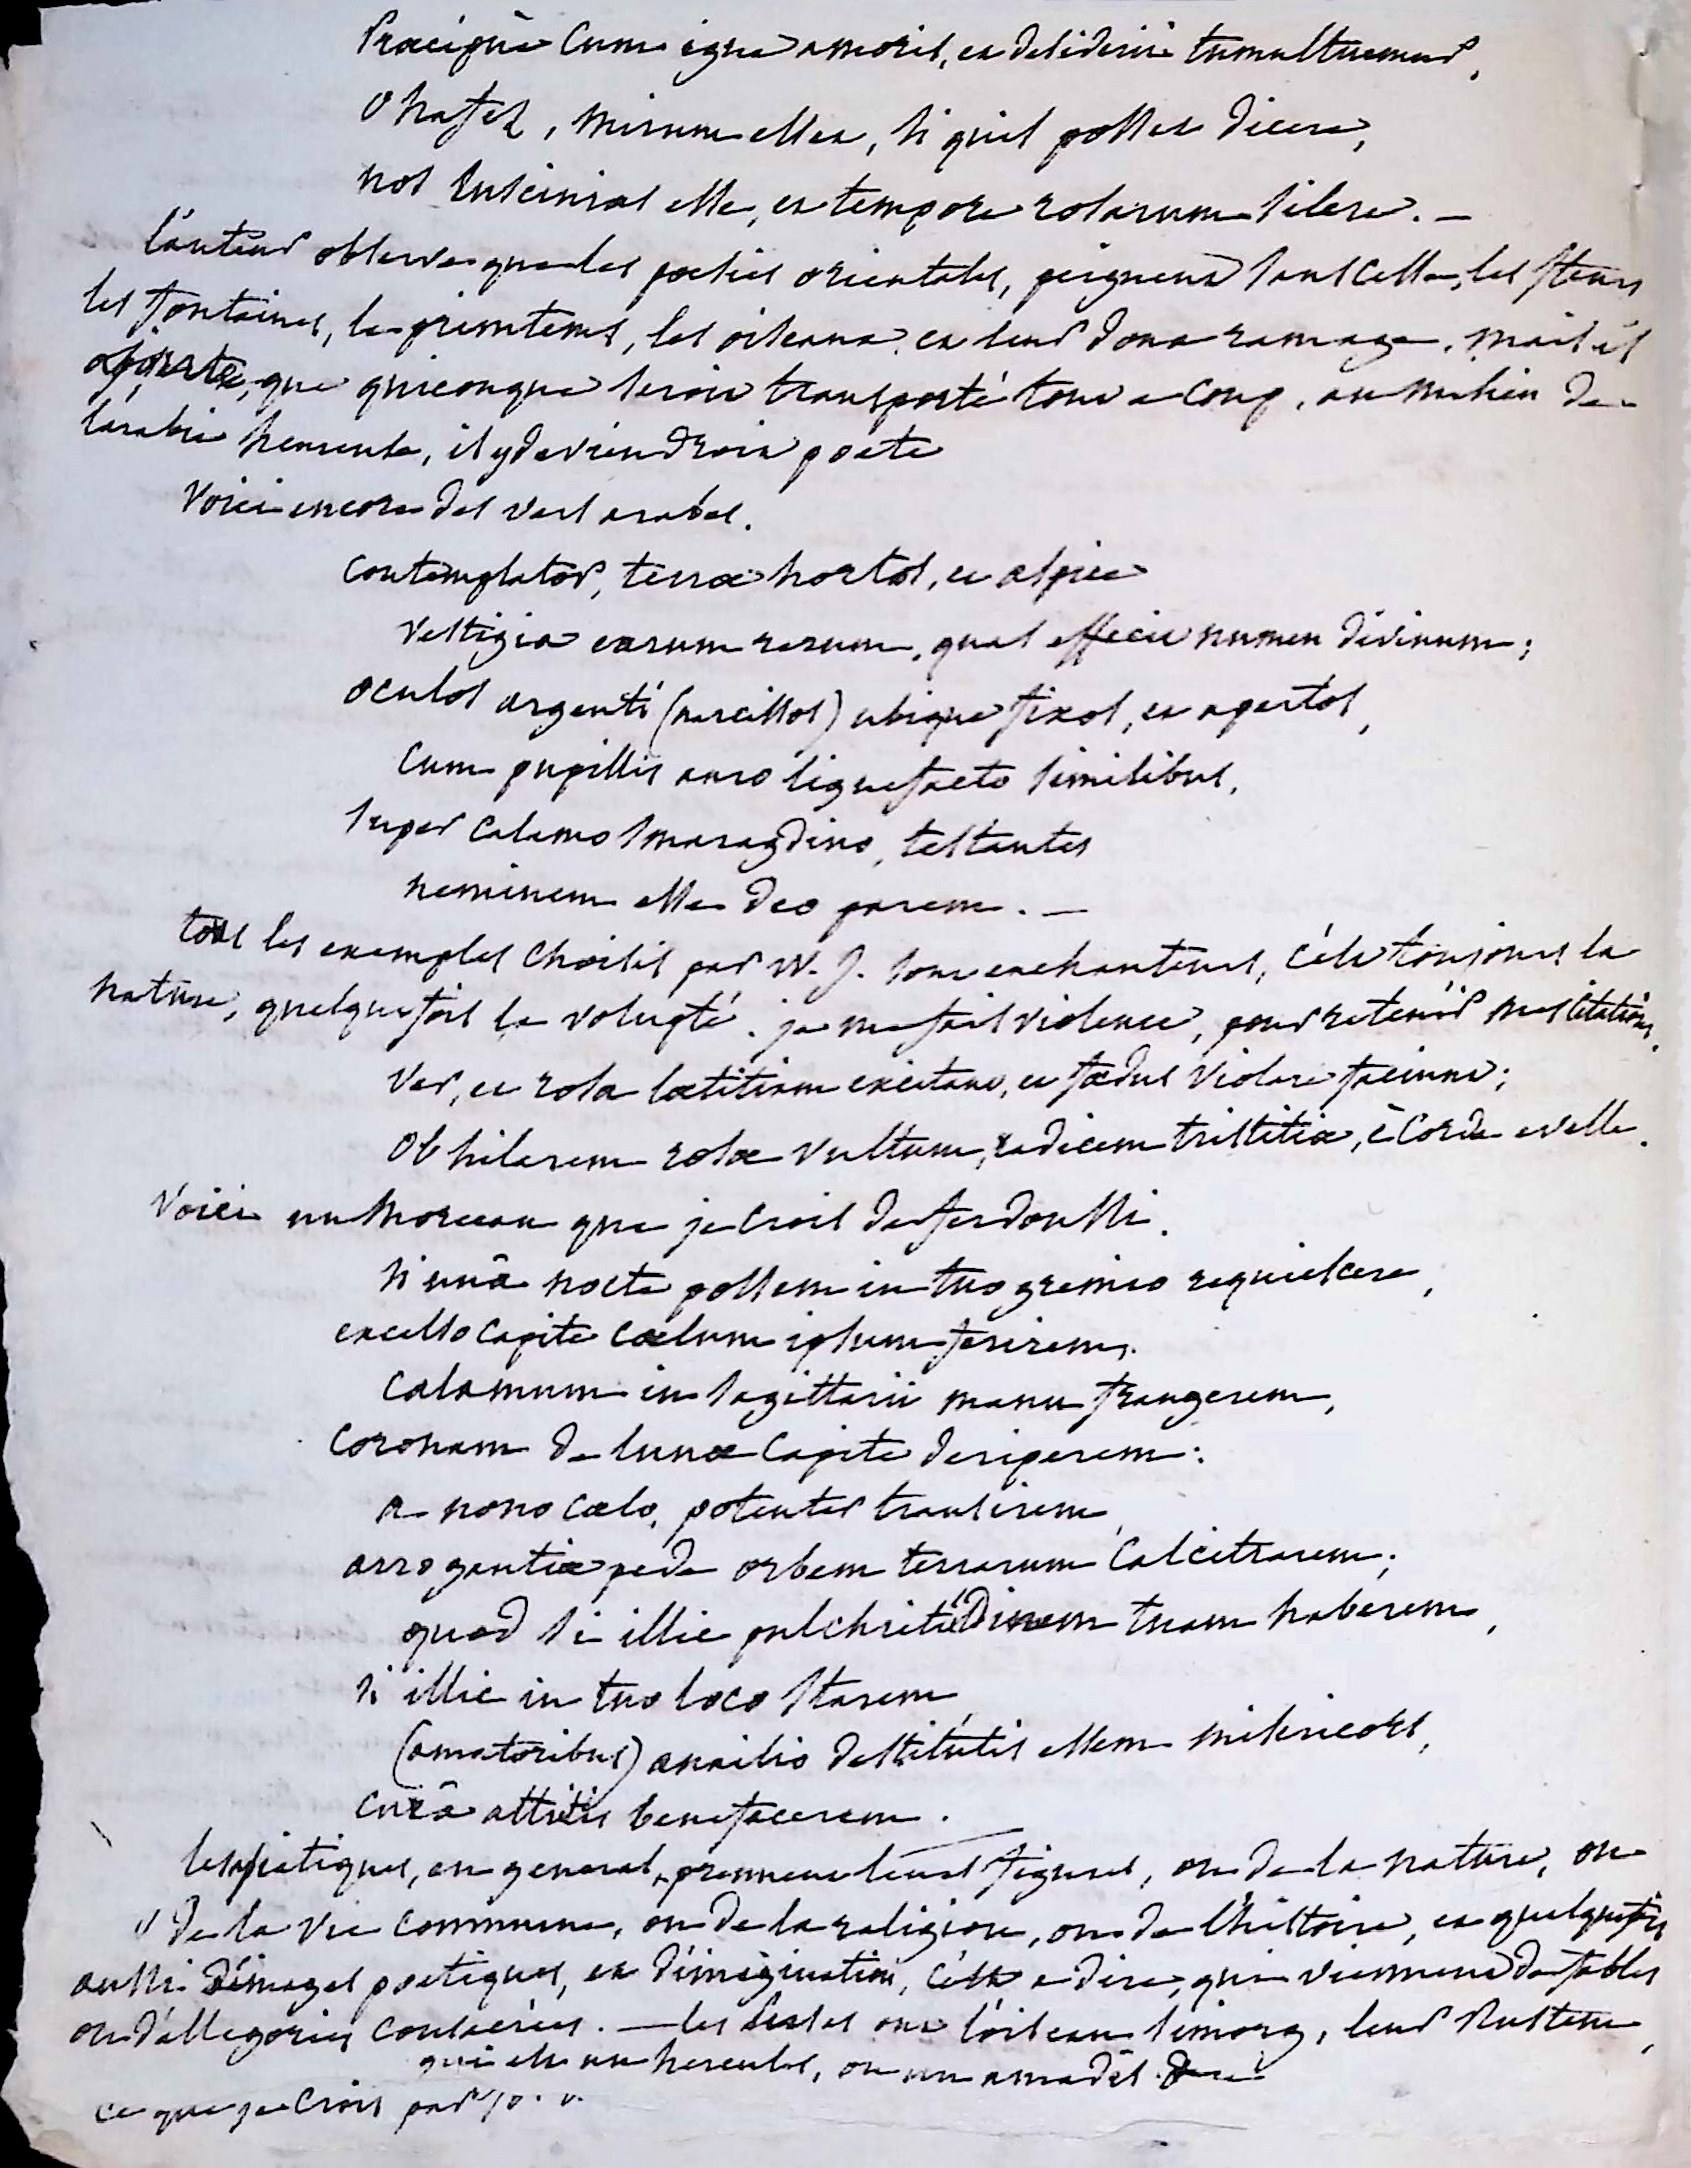 Præcipuè cum igne amoris, et desiderii tumultuemur,
O hafez, mirum esset, si quis posset dicere,
nos luscinias esse, et tempore rosarum silere. —
l'auteur observe que les poetes orientales, peignent sans cesse, les fleurs
les fontaines, le printems, les oiseaux, et leur doux ramage. mais il
ajoute, que quiconque seroit transporté tout a coup, au milieu de
l'arabie heureuse, il y deviendroit poete
Voici encore des vers arabes.
contemplator, terræ hortos, et aspice
vestigia earum rerum, quas effecit numen divinum;
oculos argenti (narcissos) ubique fixos, et apertos,
cum pupillis auro liquefacto similibus,
super calamo smaragdino, testantes
neminem esse deo parem. —
tous les exemples choisis par W. J. sont enchanteurs, c'est toujours la
nature, quelquefois la volupté. je me fais violence, pour retenir mes citations.
Ver, et rosa lætitiam excitant, et fœdus violare faciunt;
Ob hilarem rosæ vultum, radicem tristitiæ, è corde evelle.
Voici un morceau que je crois de ferdoussi.
si unâ nocte possem in tuo gremio requiescere,
excelso capite cœlum ipsum ferirem.
calamum in sagittarii manu frangerem,
coronam de lunæ capite deriperem:
a nono cœlo, potenter transirem,
arrogantiæ pede orbem terrarum calcitrarem;
quod si illic pulchritudinem tuam haberem,
si illic in tuo loco starem
(amatoribus) auxilio destitutis essem misericors,
curâ attritis benefacerem.
les asiatiques, en general, prennent leurs figures, ou de la nature, ou
de la vie commune, ou de la religion, ou de l'histoire, et quelquefois
aussi d'images poetiques, et d'imagination, c'est a dire, qui viennent de fables
ou d'allegories consacrées. — les Perses ont l'oiseau simorg, leur Rustem,
qui est un hercules, ou un amadis.
ce que je crois par